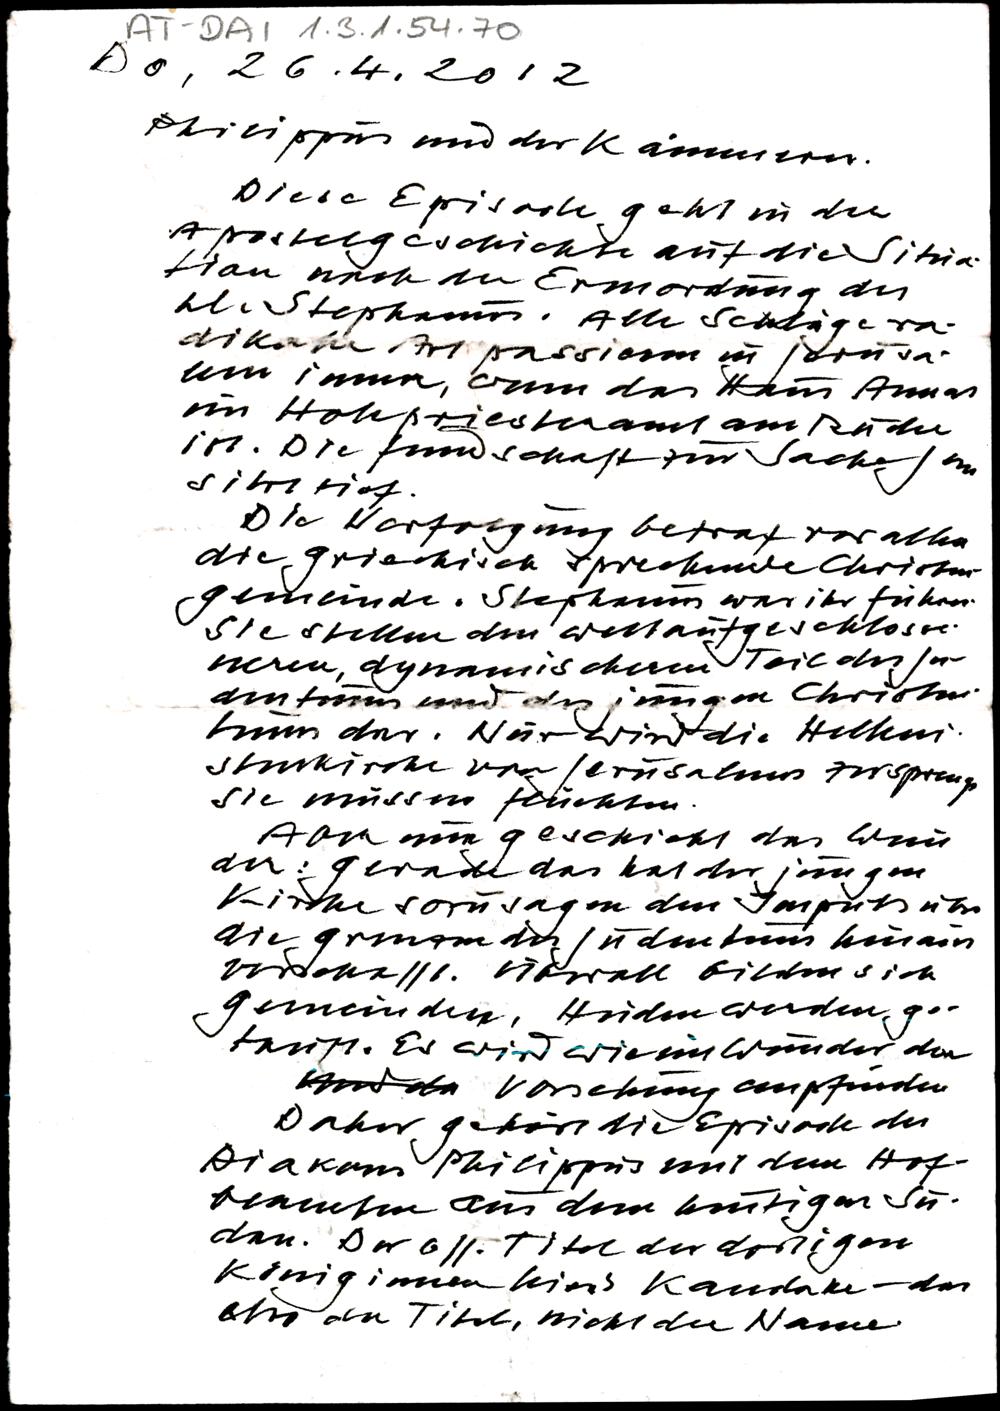 AT-DAI 1.3.1.54.70
Do, 26.4.2012
Philippus und der Kämmerer.
Diese Episode geht in der
Apostelgeschichte auf die Situa-
tion nach der Ermordung des
hl. Stephanus. Alle Schläge ra-
dikaler Art passieren in Jerusa-
lem immer, wenn das Haus Annas
im Hohepriesteramt am Ruder
ist. Die Feindschaft zur Sache Jesu
sitzt tief.
Die Verfolgung betraf vor allem
die griechisch sprechende Christen-
gemeinde. Stephanus war ihr Führer.
Sie stellen den weltaufgeschlosse-
neren, dynamischeren Teil des Ju-
dentums und des jungen Christen-
tums dar. Nun wird die Helleni-
stenkirche von Jerusalem zersprengt
Sie müssen flüchten.
Aber nun geschieht das Wun
der: gerade das hat der jungen
Kirche sozusagen den Impuls über
die Grenzen des Judentums hinaus
verschafft. Überall bilden sich
Gemeinden, Heiden werden ge-
tauft. Es wird wie ein Wunder der
Und da Vorsehung empfunden
Daher gehört die Episode des
Diakons Philippus mit dem Hof-
beamten aus dem heutigen Su-
dan. Der off. Titel der dortigen
Königinnen hiess Kandake – das
also der Titel, nicht der Name